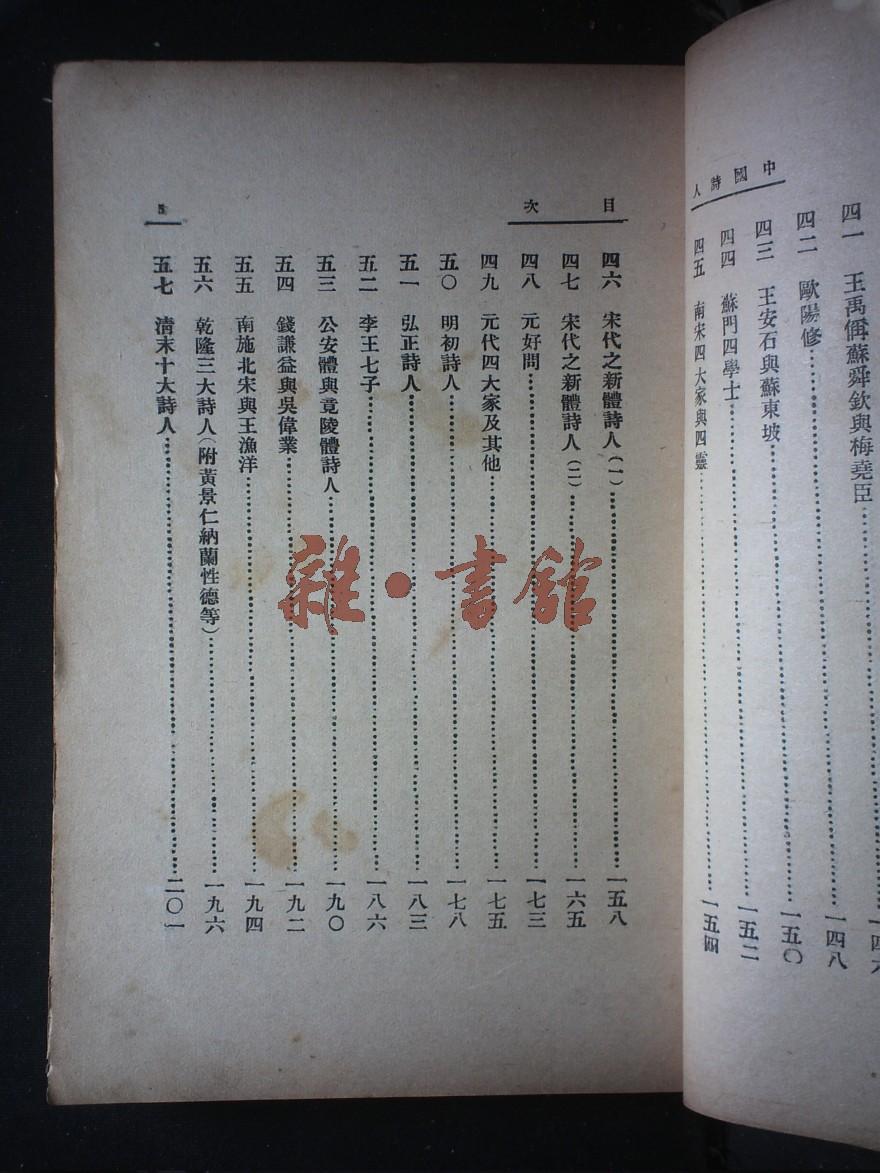 中國詩人
四一 王禹偁蘇舜欽與梅堯臣……一四六
四二 歐陽修……一四八
四三 王安石與蘇東坡……一五〇
四四 蘇門四學士……一五二
四五 南宋四大家與四靈……一五四
目次
5
四六 宋代之新體詩人(一)……一五八
四七 宋代之新體詩人(二)……一六五
四八 元好問……一七三
四九 元代四大家及其他……一七五
五〇 明初詩人……一七八
五一 弘正詩人……一八三
五二 李王七子……一八六
五三 公安體與竟陵體詩人……一九〇
五四 錢謙益與吳偉業……一九二
五五 南施北宋與王漁洋……一九四
五六 乾隆三大詩人(附黃景仁納蘭性德等)……一九六
五七 清末十大詩人……二〇一
雜·書館